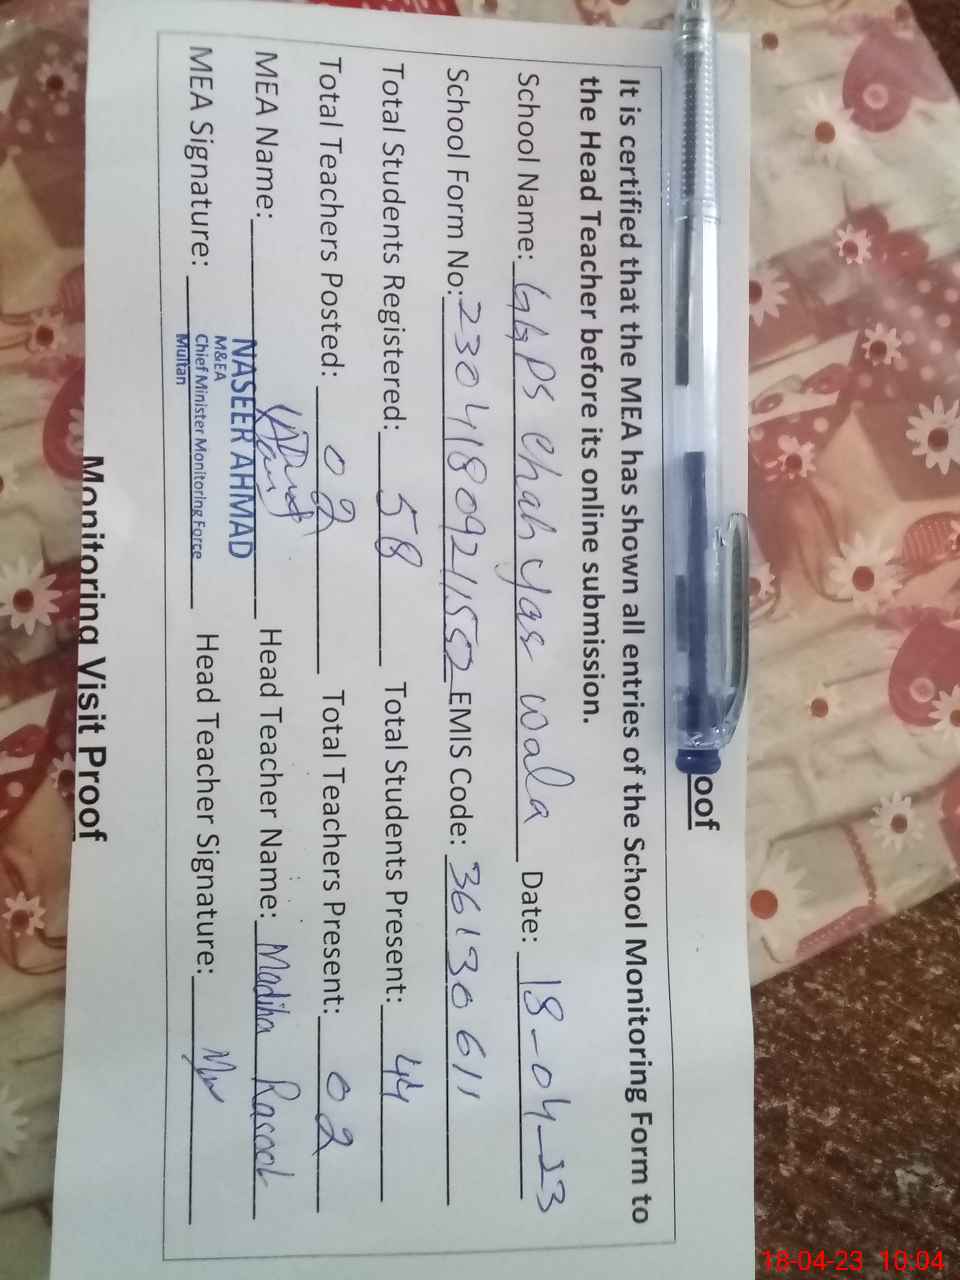 oof
It is certified that the MEA has shown all entries of the School Monitoring Form to
the Head Teacher before its online submission.
School Name: GGPS Chah Yar wala Date: 18-04-23
School Form No: 2304180921552 EMIS Code: 36130611
Total Students Registered: 58 Total Students Present: 44
Total Teachers Posted: 02 Total Teachers Present: 02
MEA Name: NASEER AHMAD Head Teacher Name: Madiha Rasool
M&EA
Chief Minister Monitoring Force
Multan
MEA Signature: Head Teacher Signature:
Monitoring Visit Proof
18-04-23 10:04